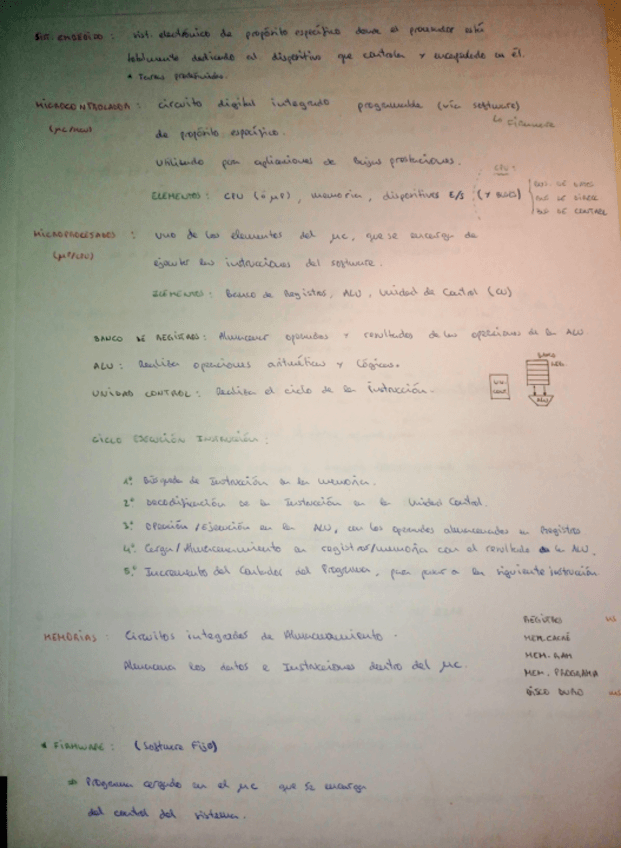 SIST. EMBEBIDO : sist. electrónico de propósito específico donde el procesador está
totalmente dedicado al dispositivo que controla y encapsulado en él.
* Tareas predefinidas.
MICROCONTROLADOR : circuito digital integrado programable (vía software)
↳ Firmware
de propósito específico.
Utilizado para aplicaciones de bajas prestaciones.
CPU
ELEMENTOS : CPU (ó µP), memoria, dispositivos E/S (y BUSES)
BUS DE DATOS
BUS DE DIREC
BUS DE CONTROL
MICROPROCESADOR : uno de los elementos del µc, que se encarga de
(µP/CPU)
ejecutar las instrucciones del software.
ELEMENTOS : Banco de Registros, ALU, Unidad de Control (CU)
BANCO DE REGISTROS : Almacenar operandos y resultados de las operaciones de la ALU
ALU : Realiza operaciones aritméticas y Lógicas.
UNIDAD CONTROL : Realiza el ciclo de la instrucción.
BANCO
REG.
UNI.
CONT.
ALU
CICLO EJECUCIÓN INSTRUCCIÓN :
1º Búsqueda de Instrucción en la memoria.
2º Decodificación de la Instrucción en la Unidad Control.
3º Operación / Ejecución en la ALU, con los operandos almacenados en Registros
4º Carga / Almacenamiento en registros/memoria con el resultado de la ALU.
5º Incremento del Contador del Programa, para pasar a la siguiente instrucción
MEMORIAS : Circuitos integrados de Almacenamiento.
Almacena los datos e Instrucciones dentro del µc.
REGISTROS
MEM. CACHÉ
MEM. RAM
MEM. PROGRAMA
DISCO DURO
* FIRMWARE : (Software Fijo)
⇒ Programa cargado en el µc que se encarga
del control del sistema.